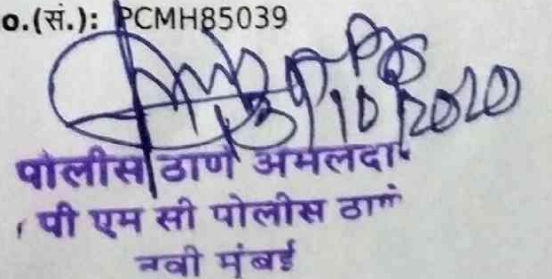 o.(सं.): PCMH85039
10/2020
पोलीस ठाणे अमलदार
पी एम सी पोलीस ठाणे
नवी मुंबई